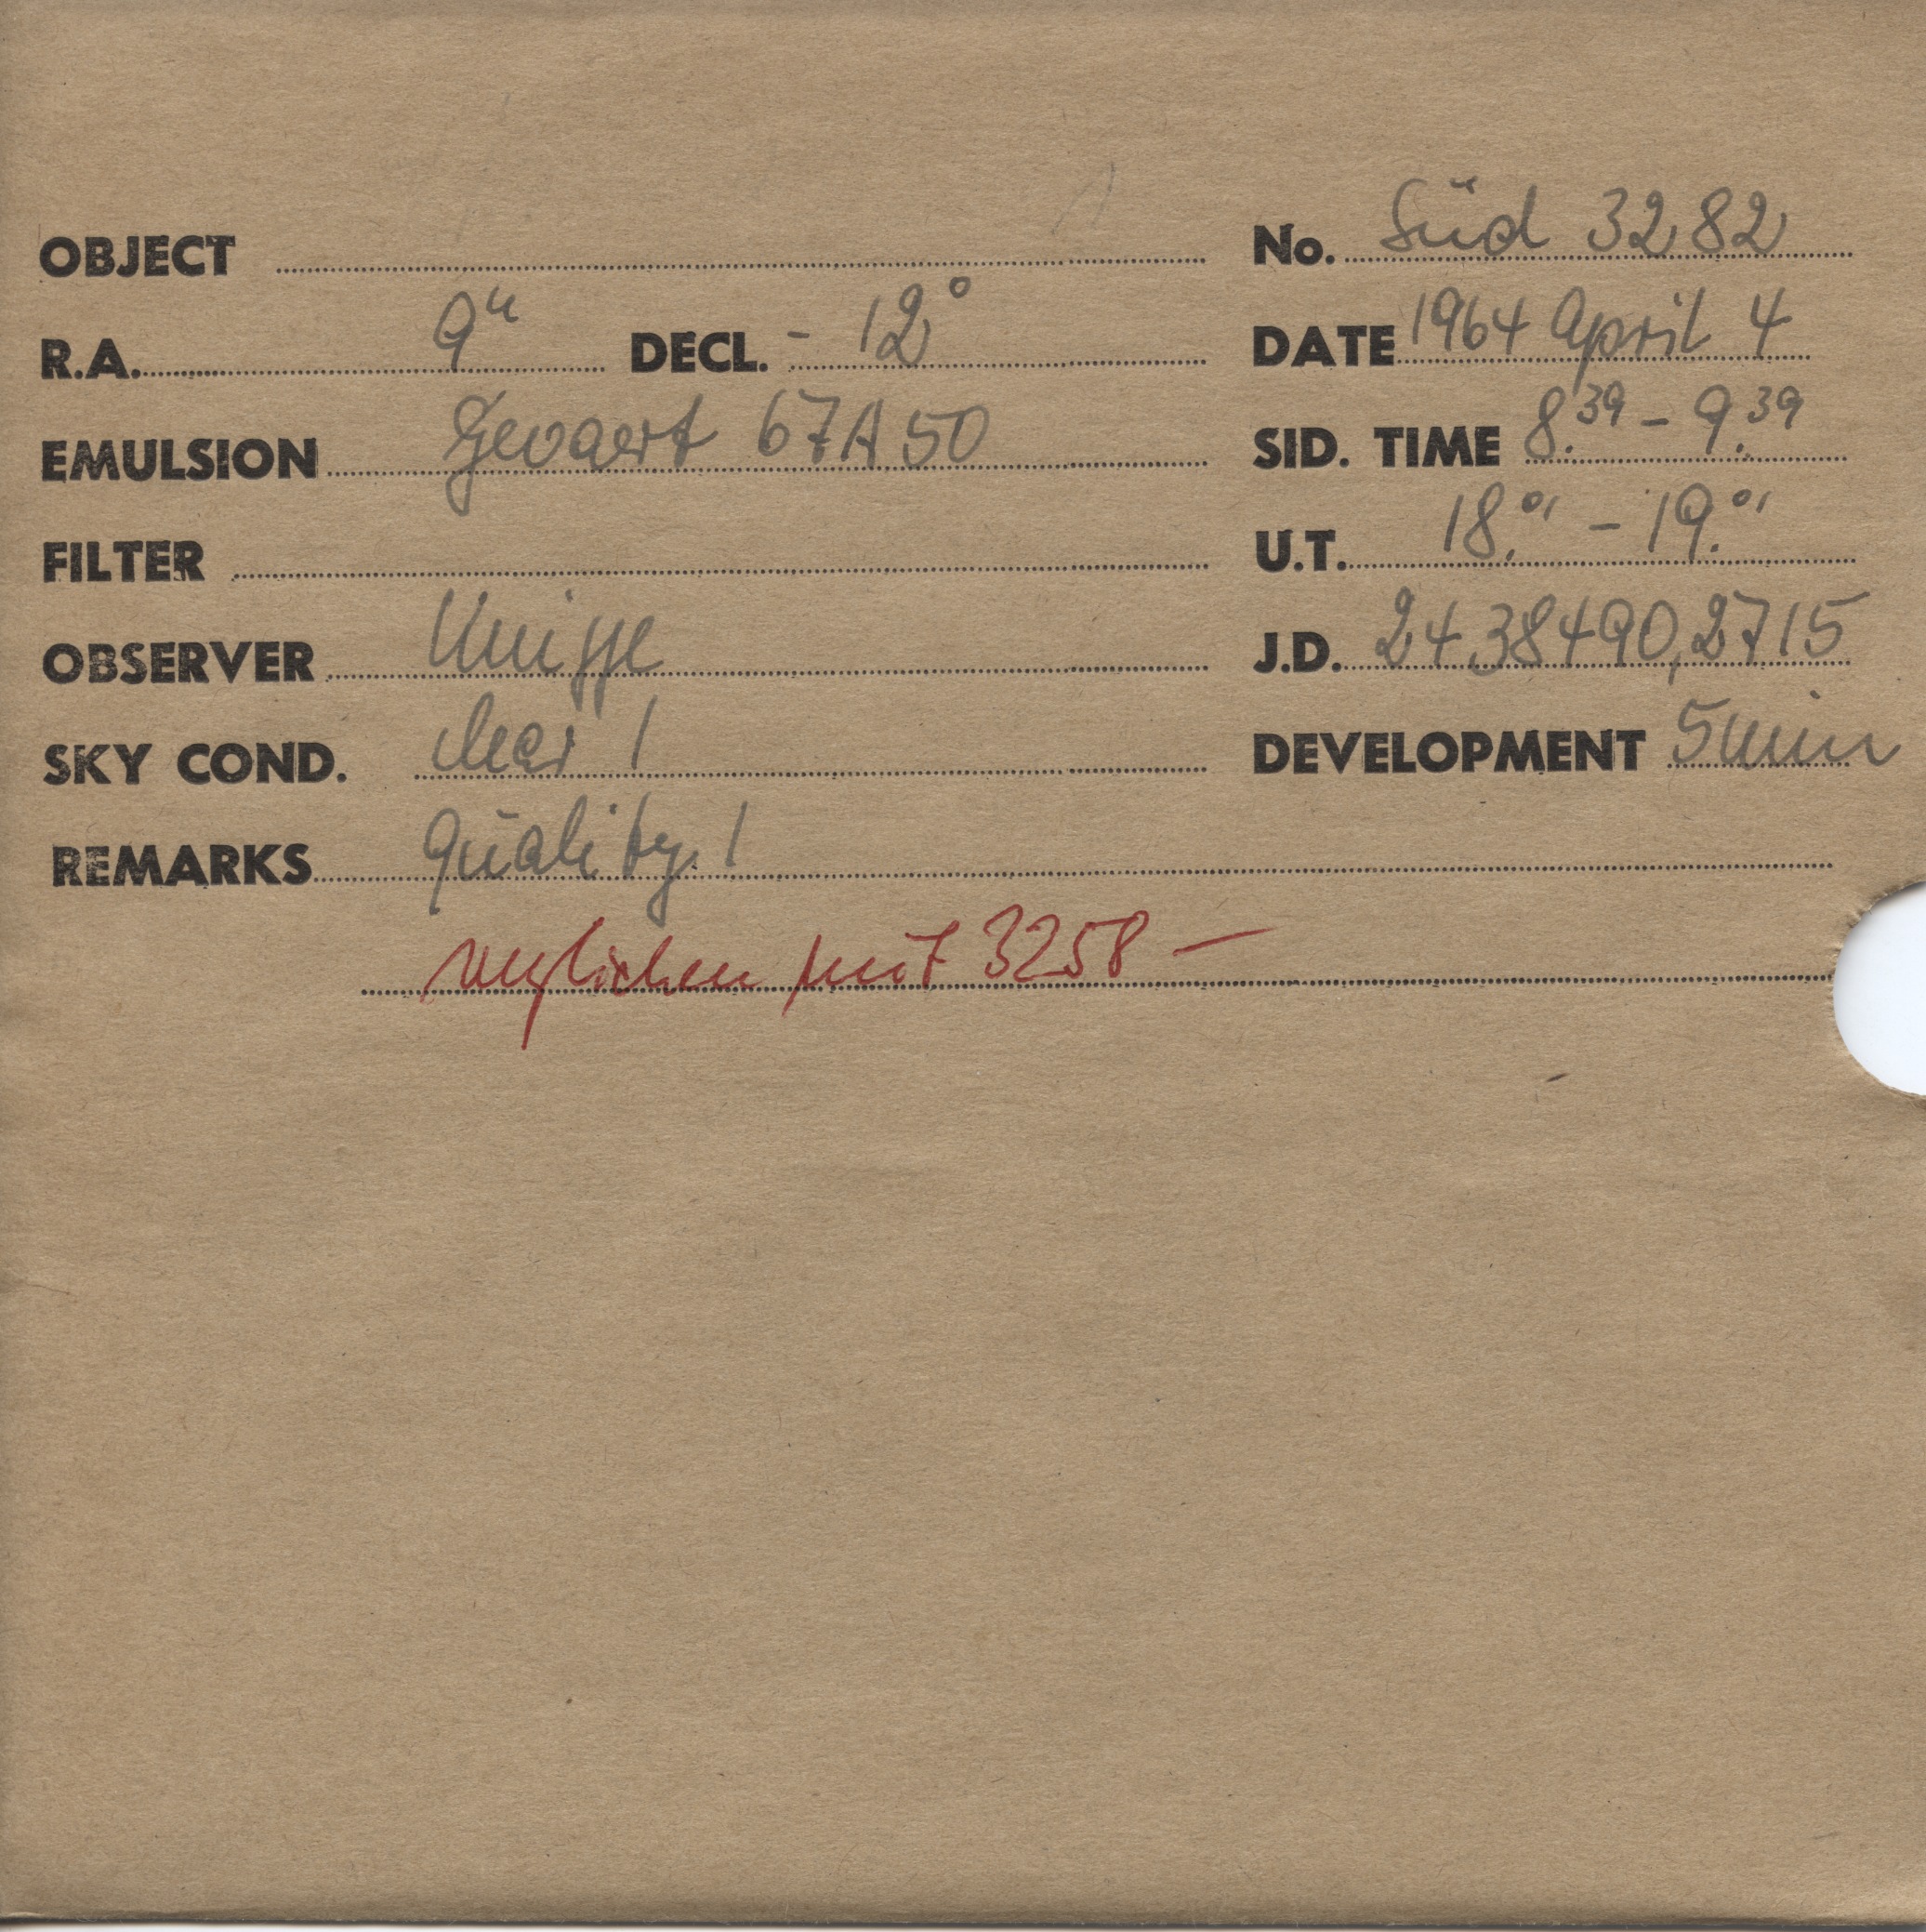 OBJECT No. Süd 3282
R.A. 9h DECL. - 12° DATE 1964 April 4
EMULSION Gevaert 67A50 SID. TIME 8.39 - 9.39
FILTER U.T. 18.01 - 19.01
OBSERVER Knigge J.D. 2438490,2715
SKY COND. clear 1 DEVELOPMENT 5 min
REMARKS Quality. 1
verglichen mit 3258 —